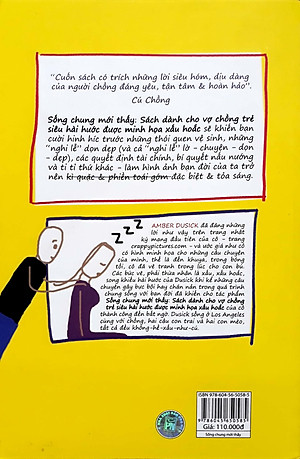 “Cuốn sách có trích những lời siêu hóm, dịu dàng
của người chồng đáng yêu, tận tâm & hoàn hảo”.
Cú Chồng
Sống chung mới thấy: Sách dành cho vợ chồng trẻ
siêu hài hước được minh họa xấu hoắc sẽ khiến bạn
cười hinh híc trước những thói quen vệ sinh, những
“nghi lễ” dọn dẹp (và cả “nghi lễ” lờ - chuyện - dọn
- dẹp), các quyết định tài chính, bí quyết nấu nướng
và ti tỉ thứ khác - làm hình ảnh bạn đời của ta trở
nên kì quặc & phiền toái gớm đặc biệt & tỏa sáng.
ZZZ
AMBER DUSICK đã đăng những
lời như vầy trên trang nhất
ký mang đầu tiên của cô - trang
crappypictures.com - và ước giá như
có hình minh họa cho những câu chuyện
của mình, thế là đến khuya, trong bóng
tối, cô đã vẽ tranh trong lúc cho con bú.
Các bức vẽ, phải thừa nhận là xấu, xấu hoắc,
song không khiếu hài hước của Dusick khi kể những câu
chuyện gây bực bội hay chán nản trong quá trình
chung sống với bạn đời đã khiến cho tác phẩm
Sống chung mới thấy: Sách dành cho vợ chồng trẻ
siêu hài hước được minh họa xấu hoắc của cô
thành công đến bất ngờ. Dusick sống ở Los Angeles
cùng với chồng, hai cậu con trai và hai con mèo,
tất cả đều không-hề-xấu-như-cú.
ISBN 978-604-56-5058-5
9 786045 650585
Giá: 110.000đ
Sống chung mới thấy